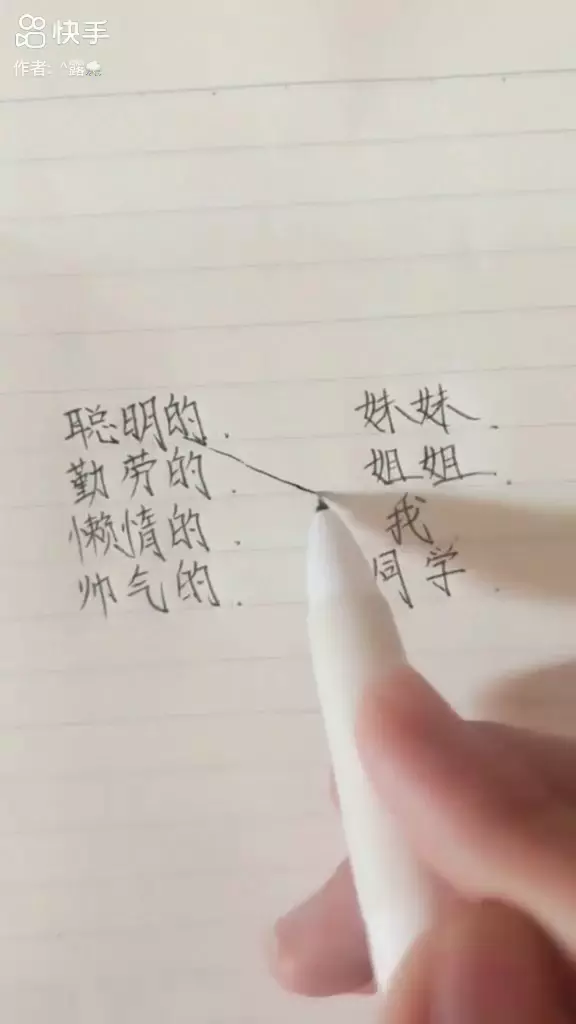 快手
作者: ^露
聪明的. 妹妹.
勤劳的. 姐姐.
懒惰的. 我
帅气的. 同学.